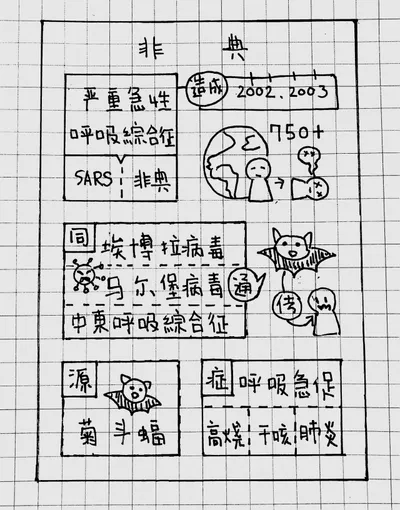 非典
严重急性
呼吸綜合征
SARS 非典
造成
2002.2003
750+
同
埃博拉病毒
乌尔堡病毒
中東呼吸綜合征
通
传
源
菊斗蝠
症
呼吸急促
高烧 干咳 肺炎